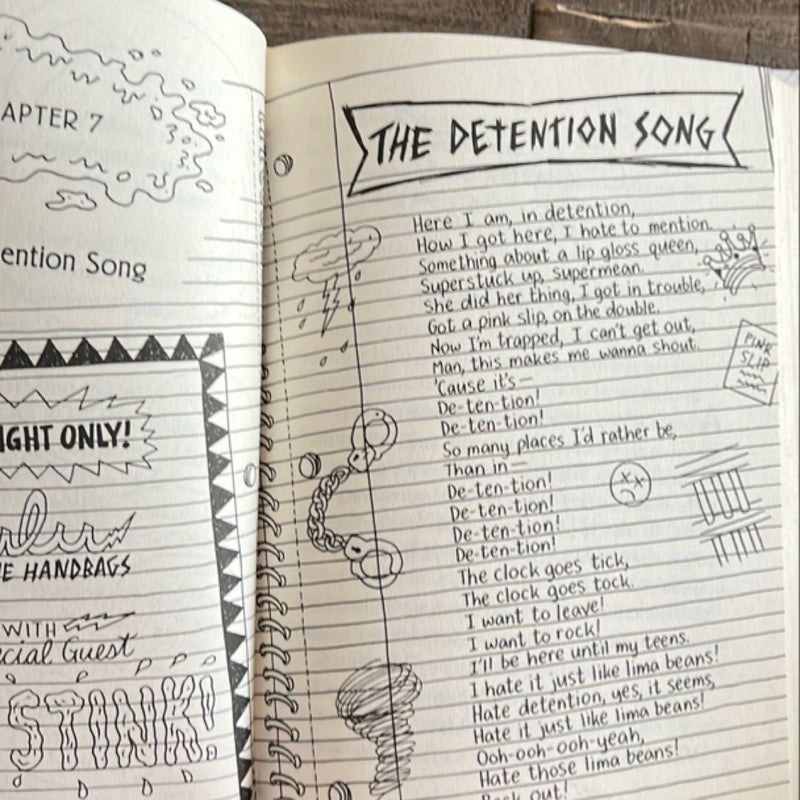 APTER 7
ention Song
IGHT ONLY!
E HANDBAGS
WITH
cial Guest
STINK!
THE DETENTION SONG
Here I am, in detention,
How I got here, I hate to mention.
Something about a lip gloss queen,
Superstuck up, supermean.
She did her thing, I got in trouble,
Got a pink slip, on the double.
Now I'm trapped, I can't get out,
Man, this makes me wanna shout.
'Cause it's—
De-ten-tion!
De-ten-tion!
So many places I'd rather be,
Than in—
De-ten-tion!
De-ten-tion!
De-ten-tion!
De-ten-tion!
The clock goes tick,
The clock goes tock.
I want to leave!
I want to rock!
I'll be here until my teens.
I hate it just like lima beans!
Hate detention, yes, it seems,
Hate it just like lima beans!
Ooh-ooh-ooh-yeah,
Hate those lima beans!
out!
PINK
SLIP